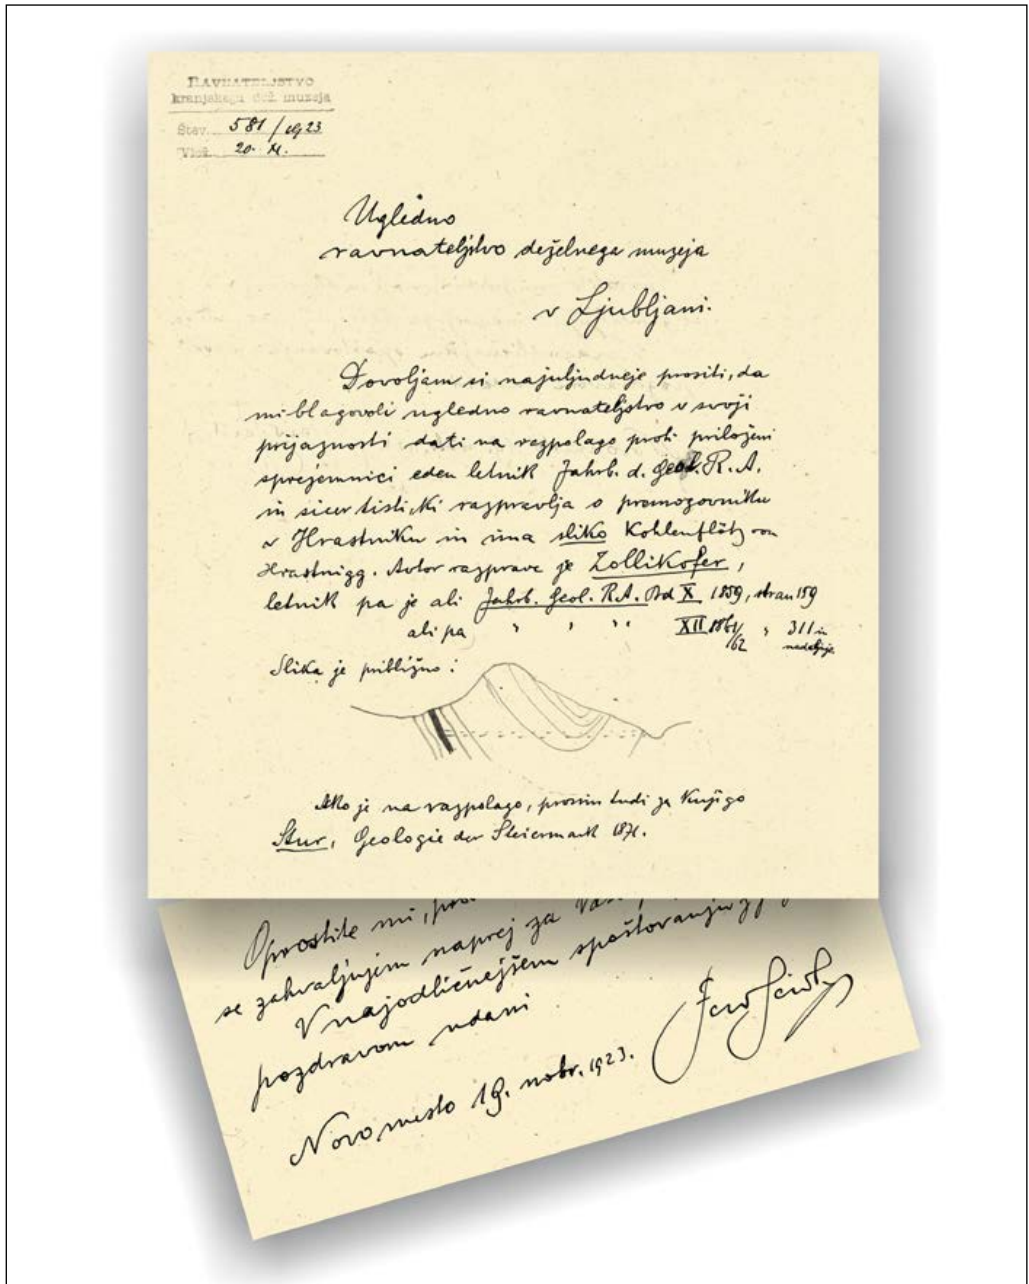 RAVNATELJSTVO
kranjskega dež. muzeja
Štev. 581/1923
Vlož. 20. XI.
Ugledno
ravnateljstvo deželnega muzeja
v Ljubljani.
Dovoljam si najuljudneje prositi, da
mi blagovoli ugledno ravnateljstvo v svoji
prijaznosti dati na razpolago proti priloženi
sprejemnici eden letnik Jahrb. d. Geol. R. A.
in sicer tisti, ki razpravlja o premogovniku
v Hrastniku in ima sliko Kohlenflötz von
Hrastnigg. Avtor razprave je Zollikofer,
letnik pa je ali Jahrb. Geol. R. A. Bd X 1859, stran 159
ali pa " " " " XII 1861/62 " 311 in nadaljnje.
Slika je približno:
Ako je na razpolago, prosim tudi za knjigo
Stur, Geologie der Steiermark 1871.
Oprostite mi,
se zahvaljujem naprej za
V najodličnejšem spoštovanju
pozdravom udani
Novo mesto 19. nobr. 1923.
Ferd Seidl